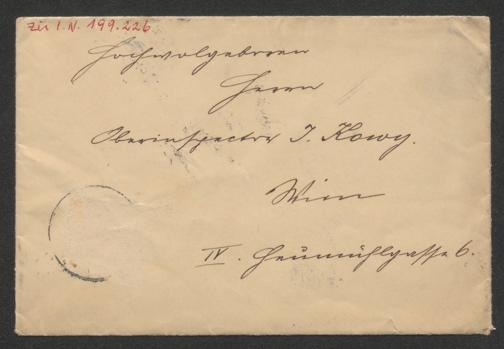 Zu I.N. 199.226
Hochwolgeboren
Herrn
Oberinspector J. Kowy.
Wien
IV. Heumühlgasse 6.